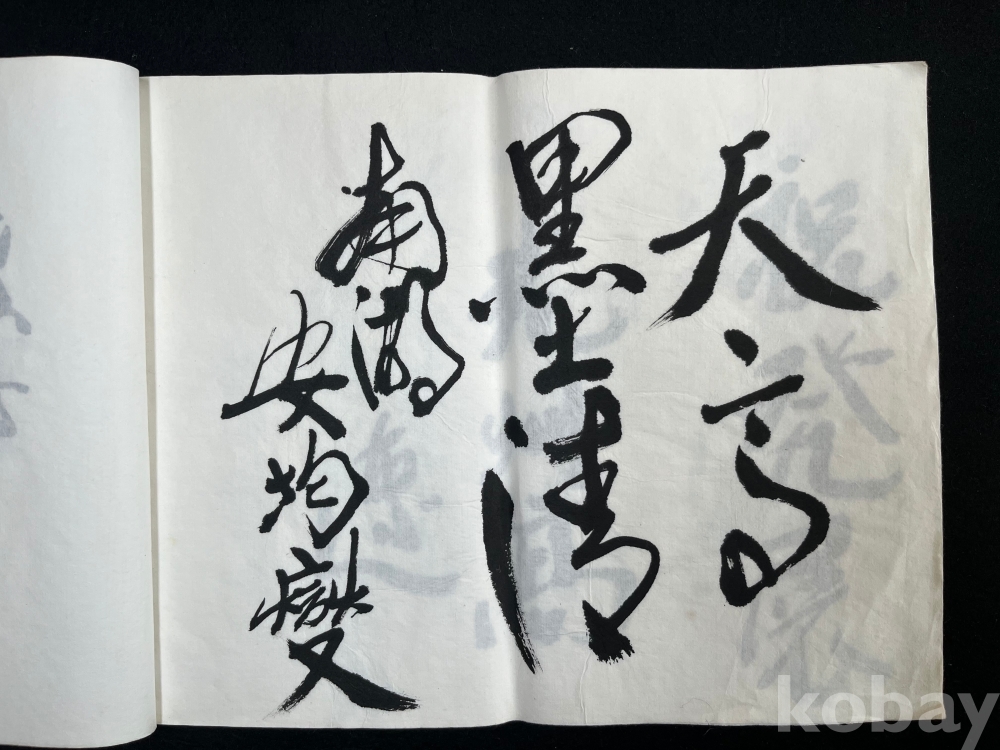 天高
墨清
南湖
安均燮
kobay